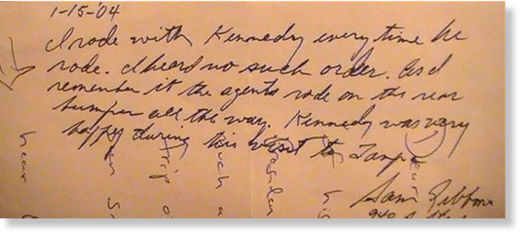 1-15-04
I rode with Kennedy every time he
rode. I heard no such order. As I
remember it the agents rode on the rear
bumper all the way. Kennedy was very
happy during his visit to Tampa.
Sam Gibbons